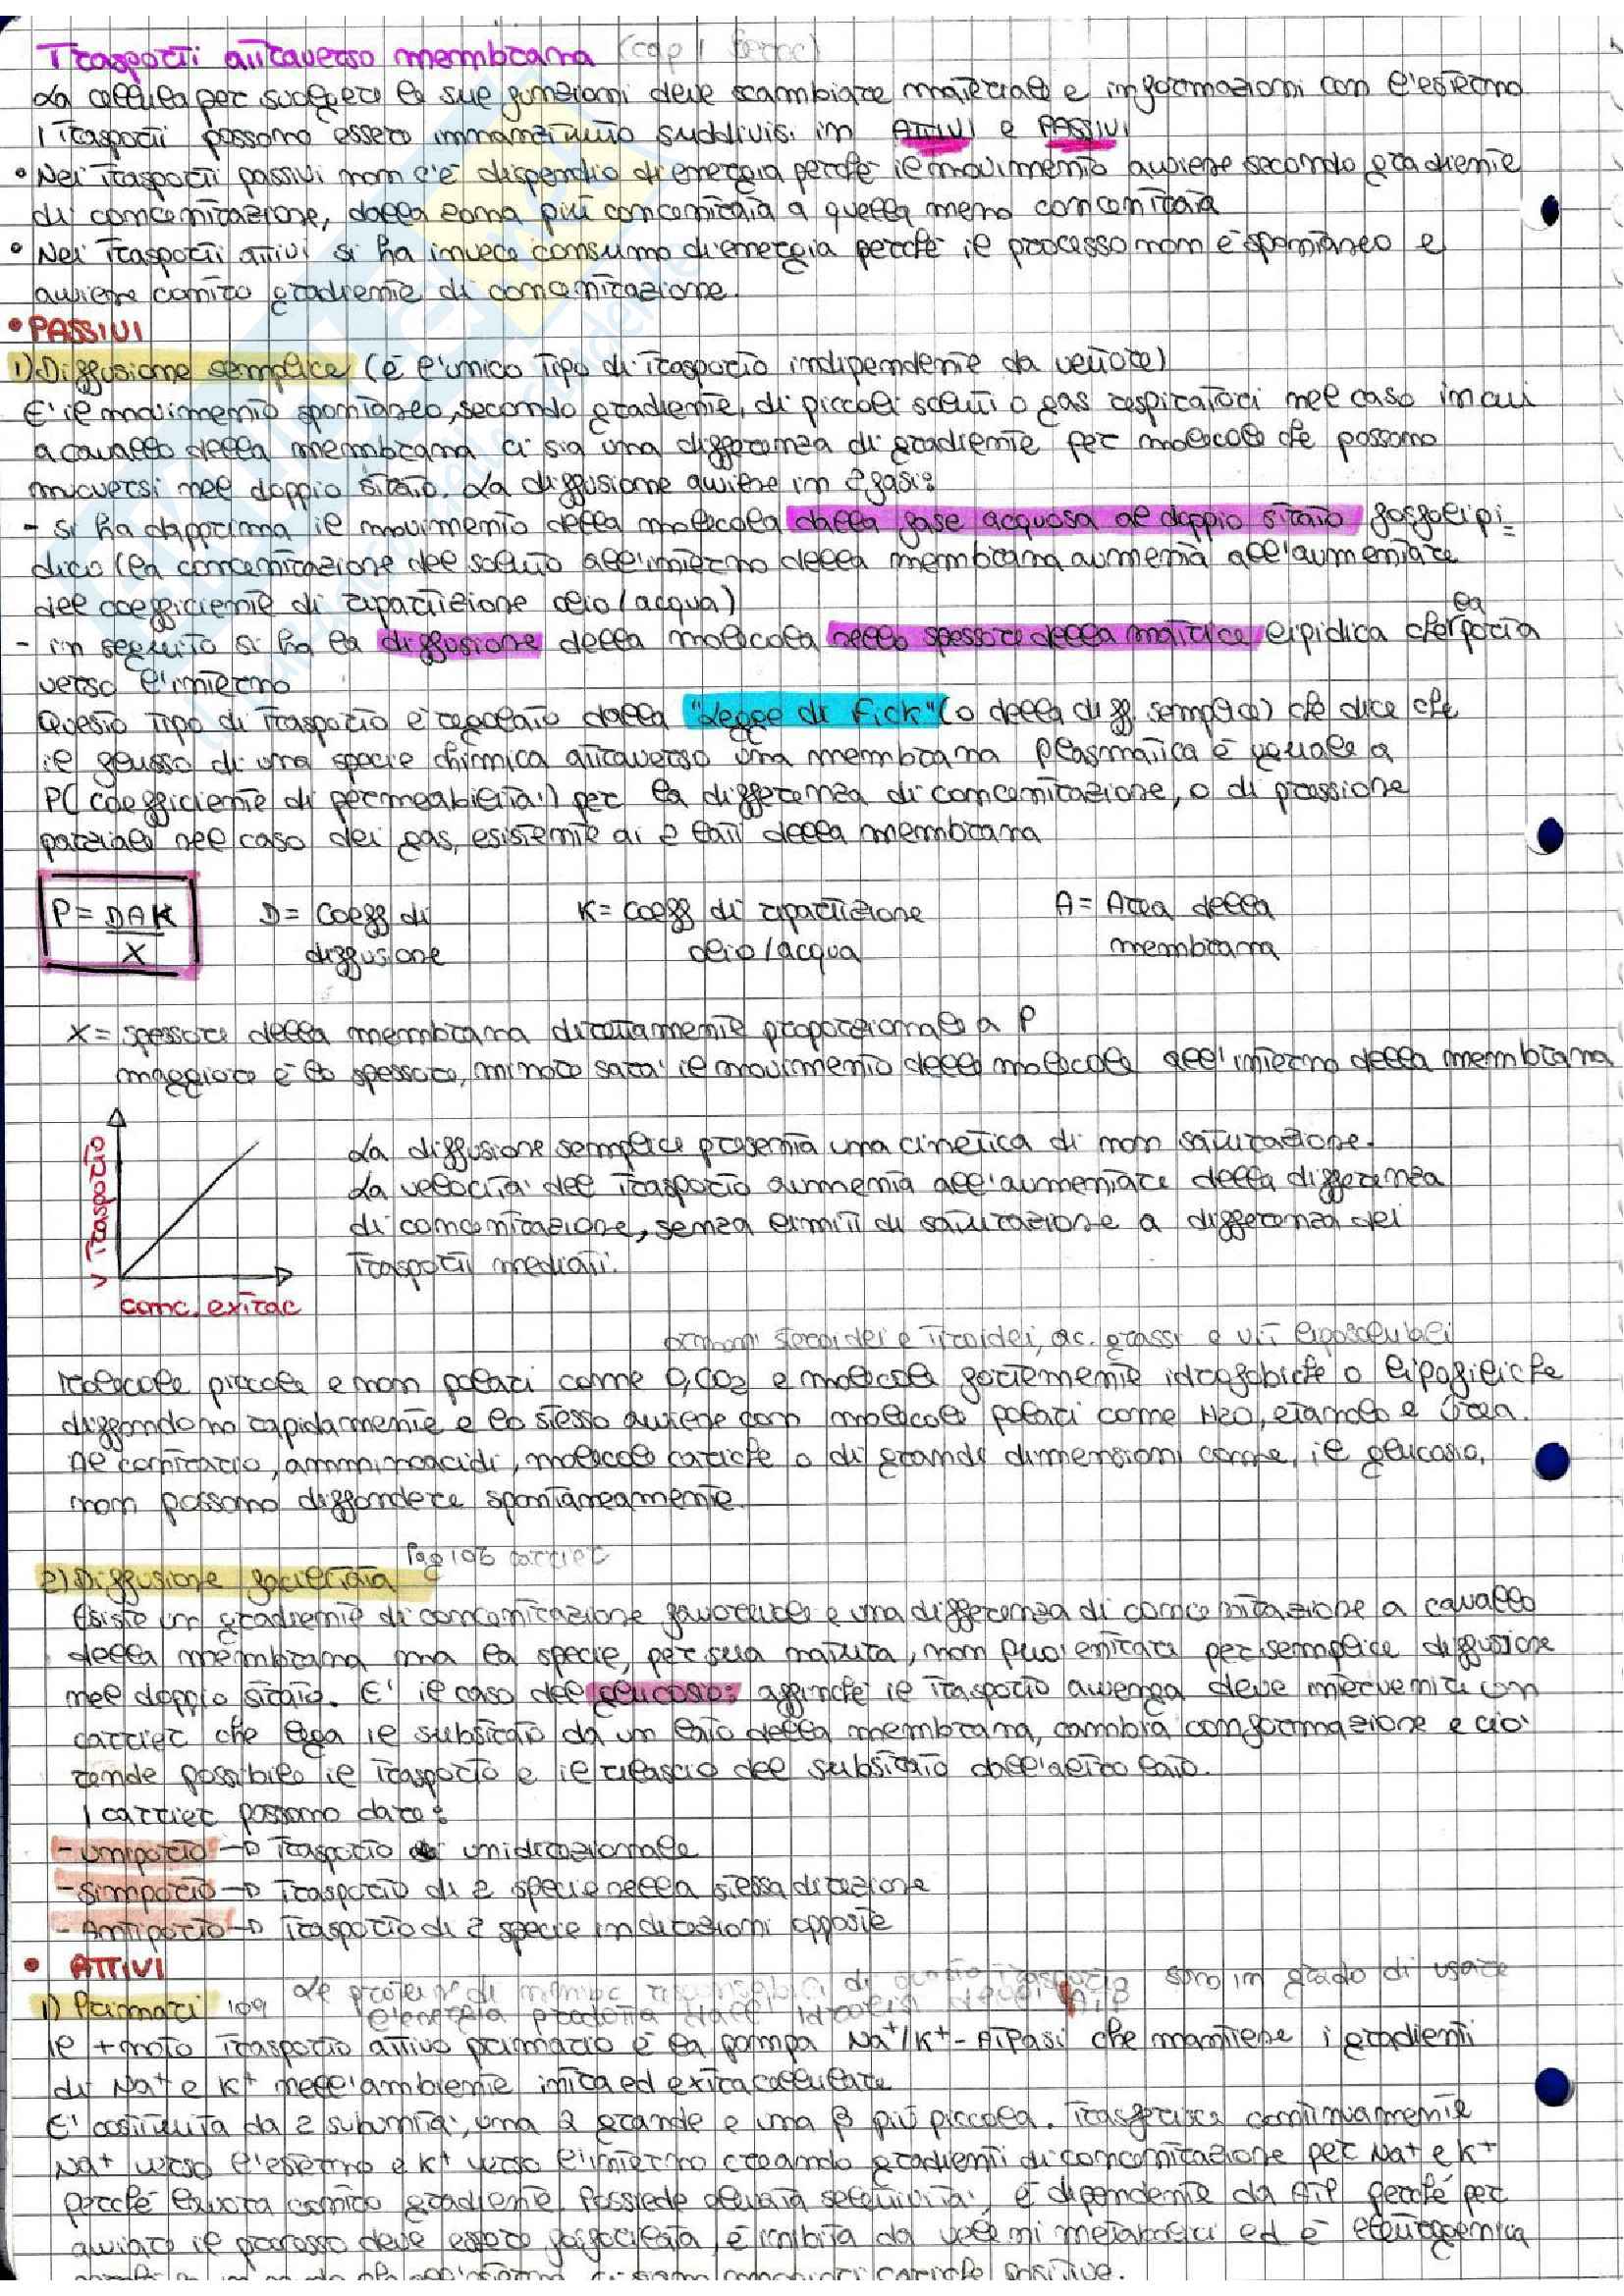 Trasporti attraverso membrana (cap 1
La cellula per svolgere le sue funzioni deve scambiare materiale e informazioni con l'esterno
I trasporti possono essere innanzitutto suddivisi in ATTIVI e PASSIVI
• Nei trasporti passivi non c'è dispendio di energia perché il movimento avviene secondo gradiente
di concentrazione, dalla zona più concentrata a quella meno concentrata
• Nei trasporti attivi si ha invece consumo di energia perché il processo non è spontaneo e
avviene contro gradiente di concentrazione.
• PASSIVI
1) Diffusione semplice (è l'unico tipo di trasporto indipendente da vettore)
E' il movimento spontaneo, secondo gradiente, di piccoli soluti o gas respiratori nel caso in cui
a cavallo della membrana ci sia una differenza di gradiente per molecole che possono
muoversi nel doppio strato. La diffusione avviene in 2 fasi:
- si ha dapprima il movimento della molecola dalla fase acquosa al doppio strato fosfolipi=
dico (la concentrazione del soluto all'interno della membrana aumenta all'aumentare
del coefficiente di ripartizione olio/acqua)
- in seguito si ha la diffusione della molecola nello spessore della matrice lipidica che la porta
verso l'interno
Questo tipo di trasporto è regolato dalla "Legge di Fick" (o della diff. semplice) che dice che
il flusso di una specie chimica attraverso una membrana plasmatica è uguale a
P( coefficiente di permeabilità) per la differenza di concentrazione, o di pressione
parziale nel caso dei gas, esistente ai 2 lati della membrana
P = DAK
X
D = Coeff di
diffusione
K = coeff di ripartizione
olio/acqua
A = Area della
membrana
X = spessore della membrana direttamente proporzionale a P
maggiore è lo spessore, minore sarà il movimento delle molecole all'interno della membrana
v trasporto
conc. extrac
La diffusione semplice presenta una cinetica di non saturazione.
La velocità del trasporto aumenta all'aumentare della differenza
di concentrazione, senza limiti di saturazione a differenza dei
trasporti mediati.
ormoni steroidei e tiroidei, ac. grassi e vit liposolubili
Molecole piccole e non polari come O, CO2 e molecole fortemente idrofobiche o lipofiliche
diffondono rapidamente e lo stesso avviene con molecole polari come H2O, etanolo e Urea.
Al contrario, amminoacidi, molecole cariche o di grandi dimensioni come, il glucosio,
non possono diffondere spontaneamente.
Pag 106 carrier
2) Diffusione facilitata
Esiste un gradiente di concentrazione favorevole e una differenza di concentrazione a cavallo
della membrana ma la specie, per sua natura, non può entrare per semplice diffusione
nel doppio strato. E' il caso del glucosio: affinché il trasporto avvenga deve intervenire un
carrier che lega il substrato da un lato della membrana, cambia conformazione e ciò
rende possibile il trasporto e il rilascio del substrato dall'altro lato.
I carrier possono dare:
- Uniporto → trasporto unidirezionale
- Simporto → trasporto di 2 specie nella stessa direzione
- Antiporto → trasporto di 2 specie in direzioni opposte
• ATTIVI
Le proteine di membr responsabili di questo trasporto sono in grado di usare
1) Primari 109 l'energia prodotta dall'idrolisi dell'ATP
il + noto trasporto attivo primario è la pompa Na+/K+- ATPasi che mantiene i gradienti
di Na+ e K+ nell'ambiente intra ed extracellulare
E' costituita da 2 subunità, una α grande e una β più piccola. Trasferisce continuamente
Na+ verso l'esterno e K+ verso l'interno creando gradienti di concentrazione per Na+ e K+
perché lavora contro gradiente. Possiede elevata selettività, è dipendente da ATP perché per
avviare il processo deve essere fosforilata, è inibita da veleni metabolici ed è elettrogenica
cariche positive.